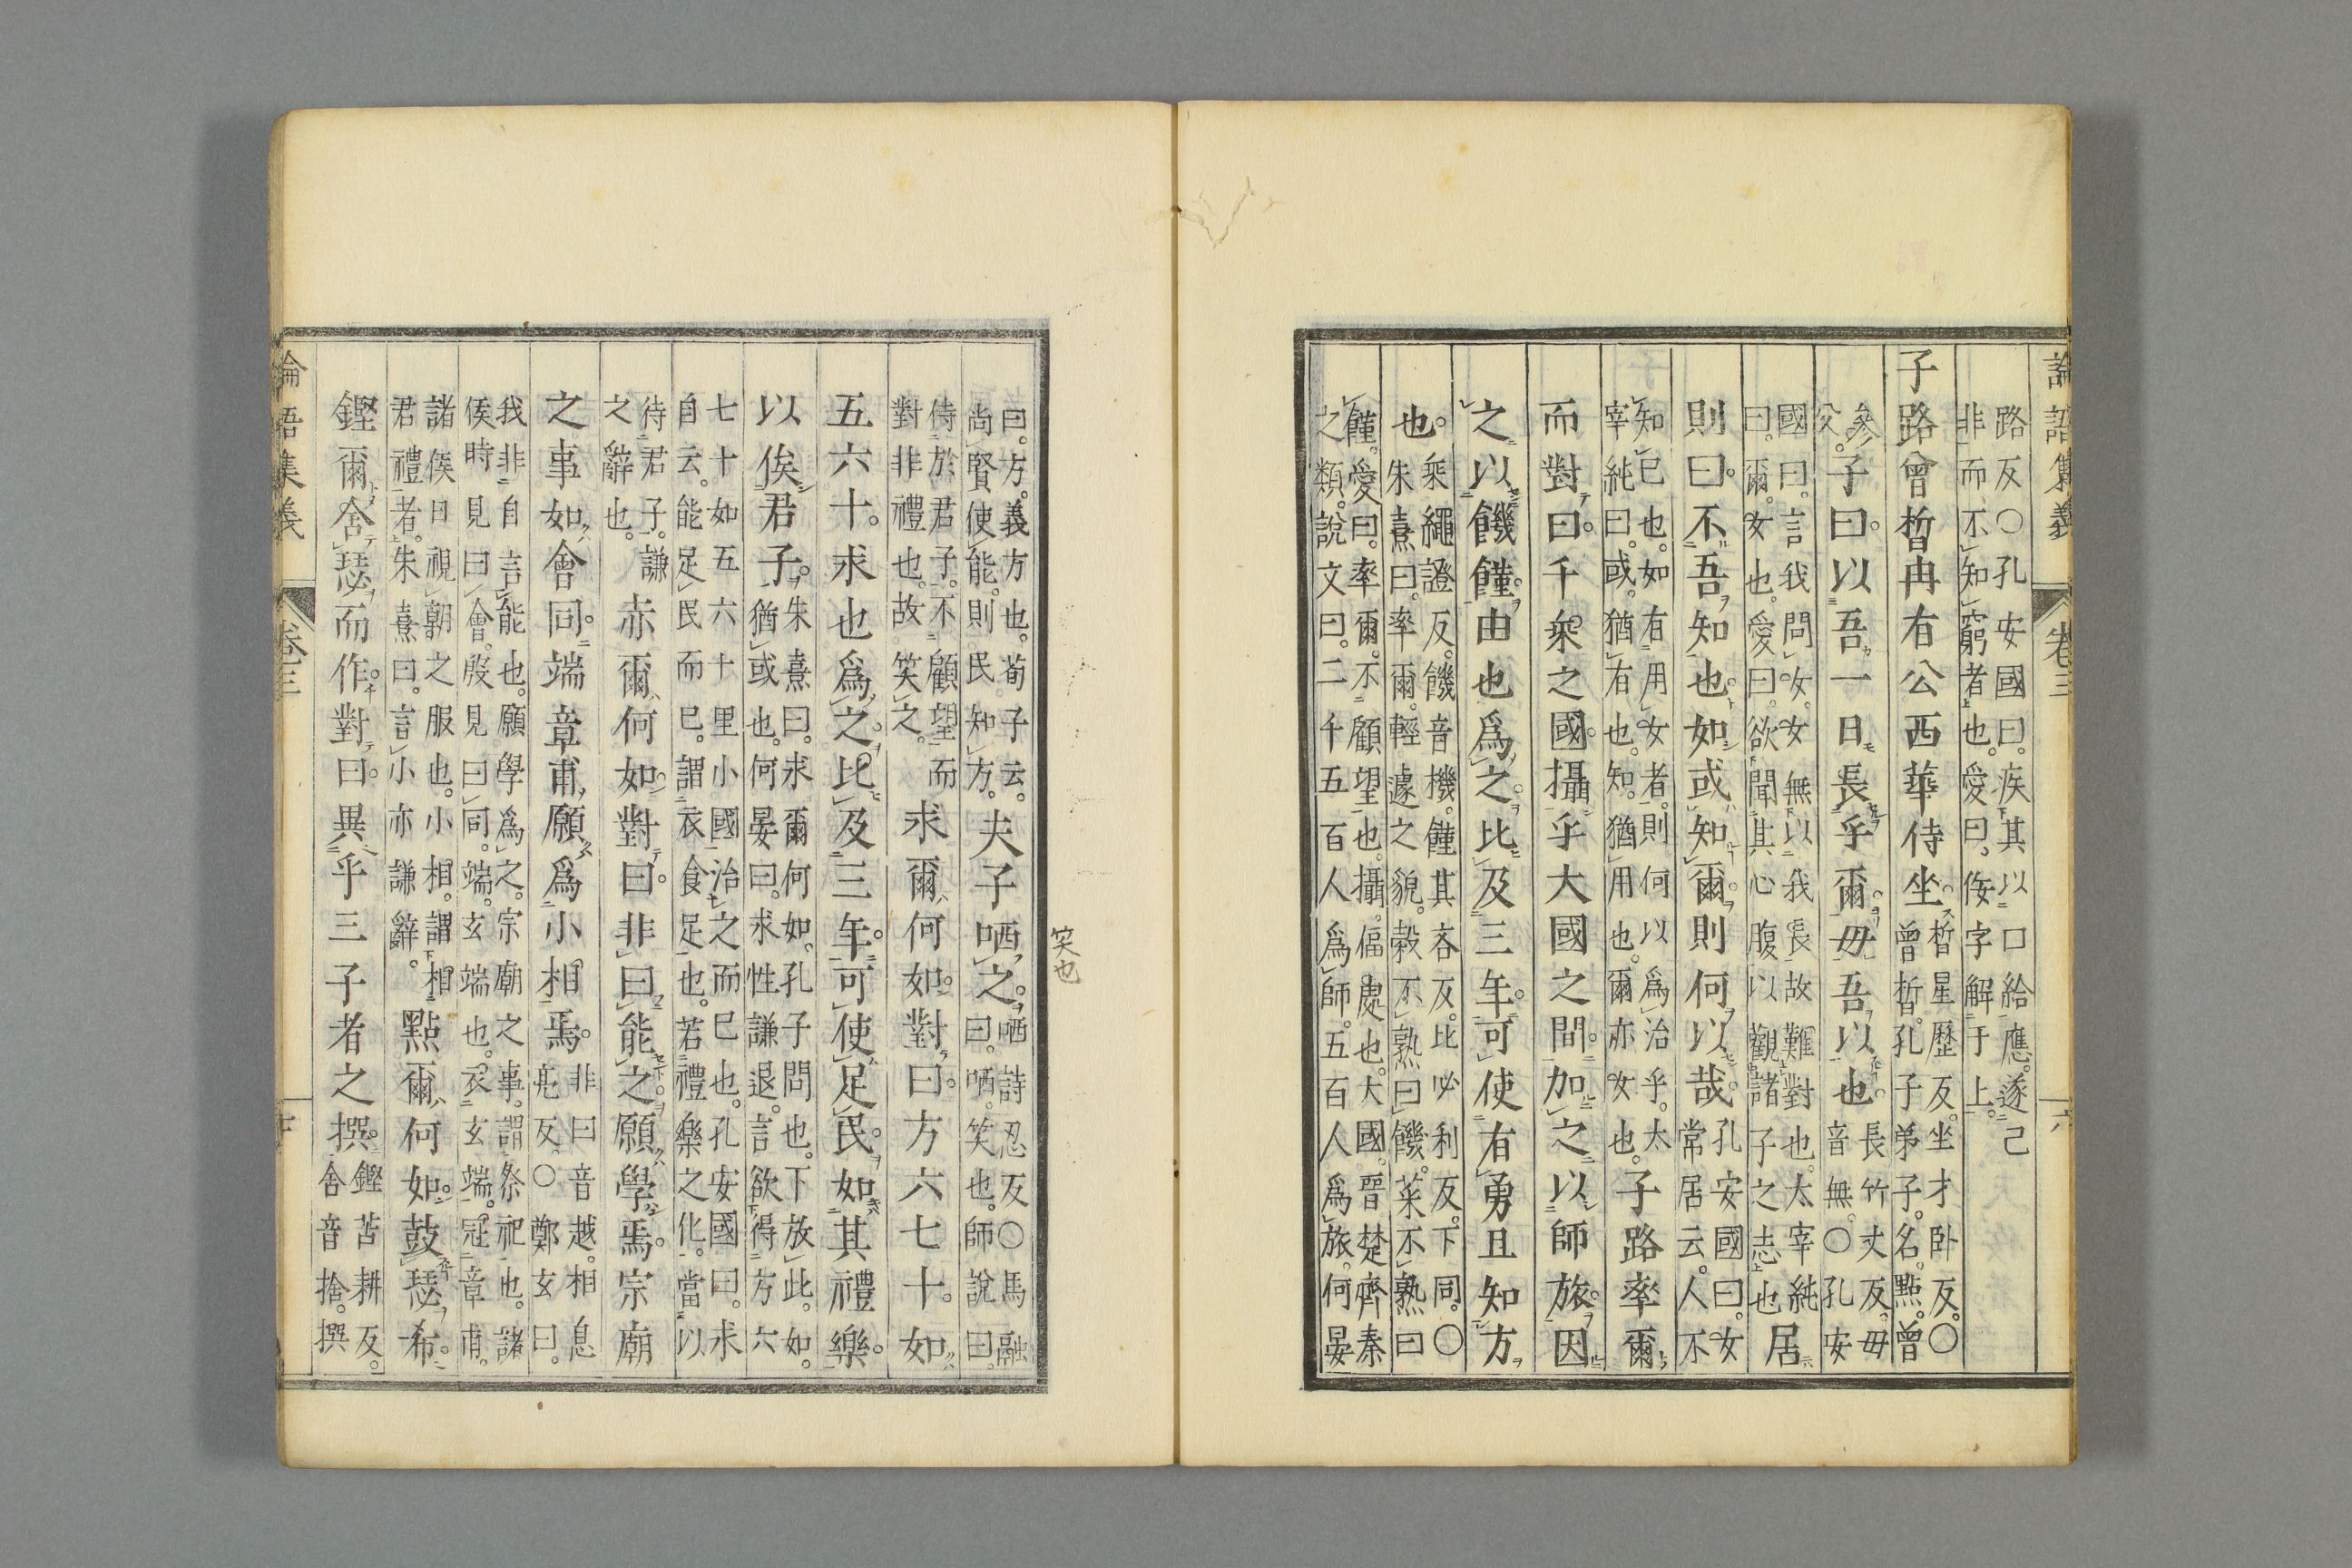 論語集義 卷三 六
路反〇孔安國曰。疾其以口給應。遂己
非而不知窮者也。愛曰、侫字解于上。
子路曾晳冉有公西華侍坐。晳星歷反。坐才卧反。〇
曾晳。孔子弟子。名點。曾
參父。子曰。以吾一日長乎爾。毋吾以也。長竹丈反。毋
音無。〇孔安
國曰。言我問女。女無以我長故難對也。太宰純
曰。爾。女也。愛曰。欲聞其心腹以觀諸子之志也居
則曰。不吾知也。如或知爾。則何以哉。孔安國曰。女
常居云。人不
知已也。如有用女者。則何以爲治乎。太
宰純曰。或。猶有也。知。猶用也。爾亦女也。子路率爾
而對曰。千乘之國。攝乎大國之間。加之以師旅。因
之以饑饉。由也爲之。比及三年。可使有勇且知方
也。乘繩證反。饑音機。饉其吝反。比必利反。下同。〇
朱熹曰。率爾。輕遽之貌。穀不熟曰饑。菜不熟曰
饉。愛曰。率爾。不顧望也。攝。偪處也。大國。晉楚齊秦
之類。說文曰。二千五百人爲師。五百人爲旅。何晏
曰。方。義方也。荀子云。
尚賢使能。則民知方。夫子哂之。哂詩忍反〇馬融
曰。哂。笑也。師說曰。
笑也
侍於君子。不顧望而
對非禮也。故笑之。求爾何如。對曰。方六七十。如
五六十。求也爲之。比及三年。可使足民。如其禮樂。
以俟君子。朱熹曰。求爾何如。孔子問也。下放此。如。
猶或也。何晏曰。求性謙退。言欲得方六
七十如五六十里小國治之而已也。孔安國曰。求
自云。能足民而已。謂衣食足也。若禮樂之化。當以
待君子。謙
之辭也。赤爾何如。對曰。非曰能之。願學焉。宗廟
之事如會同。端章甫。願爲小相焉。非曰音越。相息
亮反。〇鄭玄曰。
我非自言能也。願學爲之。宗廟之事。謂祭祀也。諸
侯時見曰會。殷見曰同。端。玄端也。衣玄端。冠章甫。
諸侯日視朝之服也。小相。謂相
君禮者。朱熹曰。言小亦謙辭。點爾何如。鼓瑟希。
鏗爾。舍瑟而作。對曰。異乎三子者之撰。鏗苦耕反。
舍音捨。撰
論語集義 卷三